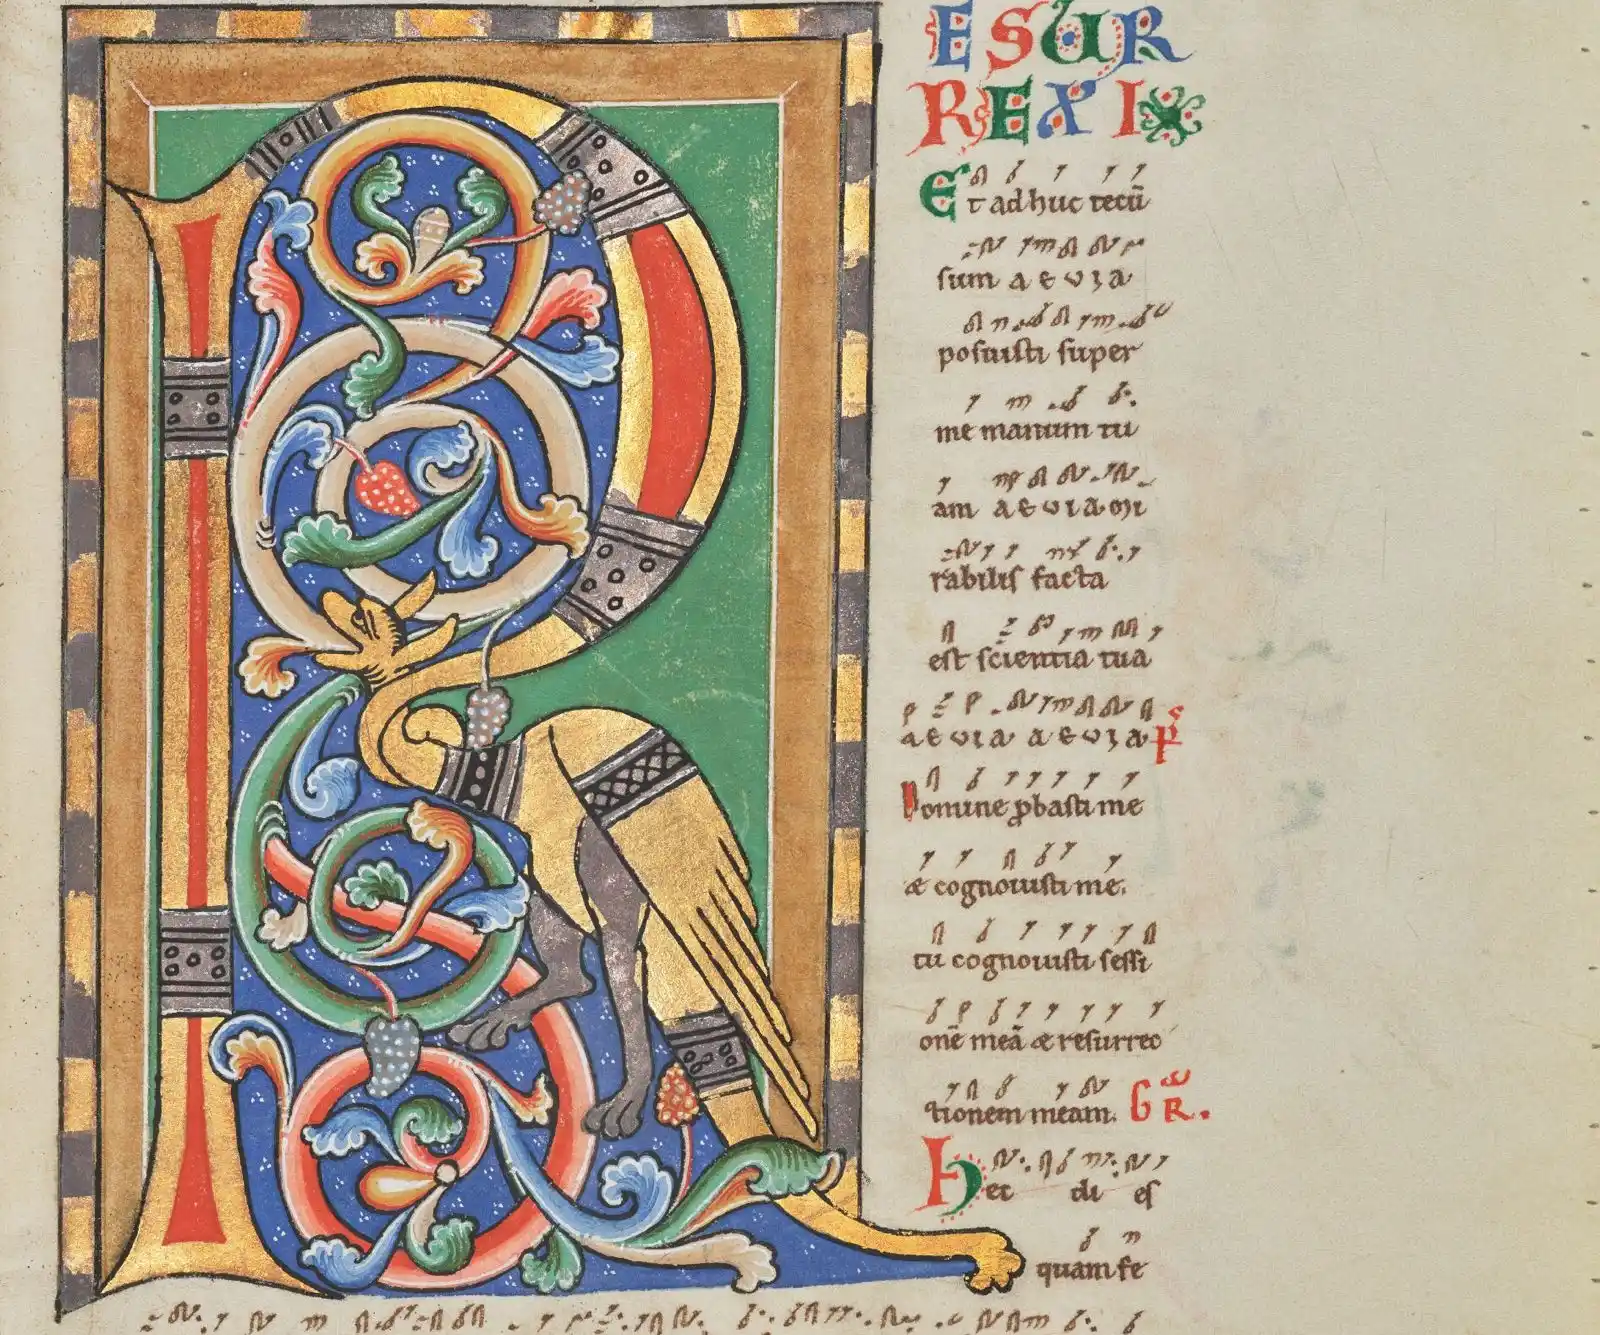 R
ESUR
REXI
Et adhuc tecū
sum aeuia
posuisti super
me manum tu
am aeuia mi
rabilis facta
est scientia tua
aeuia aeuia p̄s
Domine ꝓbasti me
& cognouisti me.
tu cognouisti sessi
onē meā & resurrec
tionem meam. GR.
Hec di es
quam fe